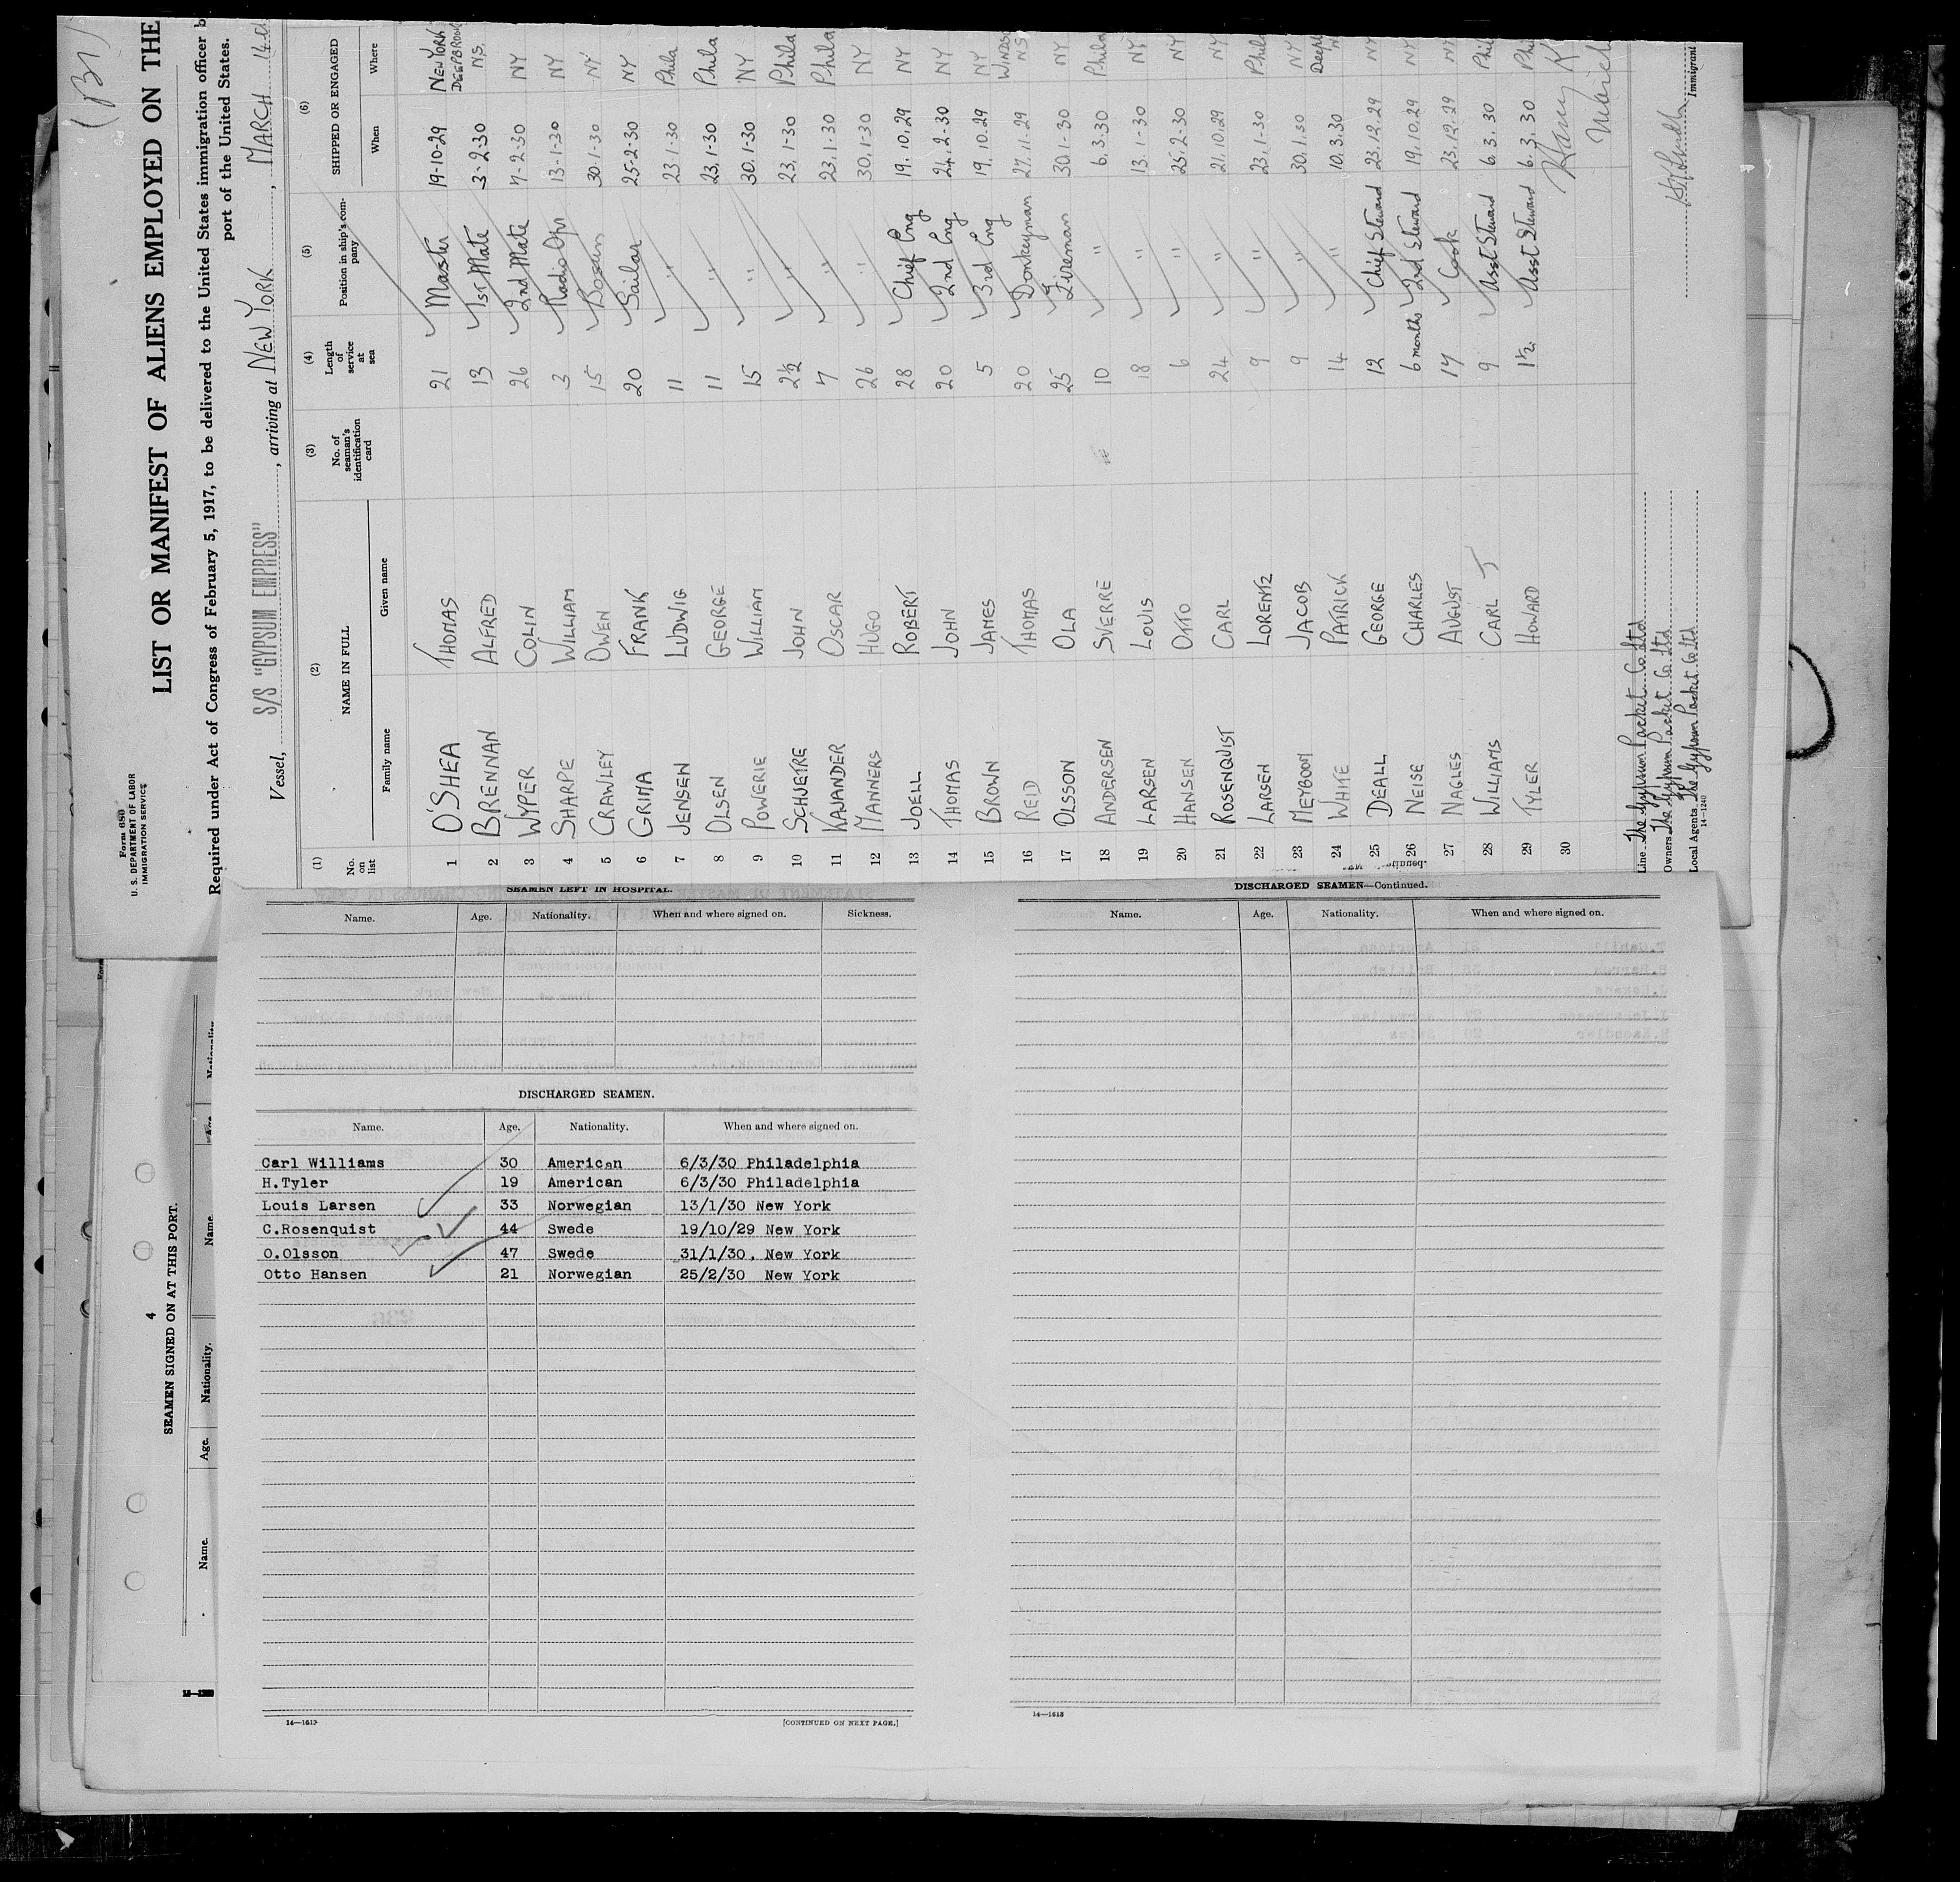 (B1)
Form 680
U. S. DEPARTMENT OF LABOR
IMMIGRATION SERVICE
LIST OR MANIFEST OF ALIENS EMPLOYED ON THE
Required under Act of Congress of February 5, 1917, to be delivered to the United States immigration officer b
port of the United States.
Vessel, S/S "GYPSUM EMPRESS", arriving at NEW YORK, MARCH 14
(1) (2) (3) (4) (5) (6)
No. on list NAME IN FULL No. of seaman's identification card Length of service at sea Position in ship's company SHIPPED OR ENGAGED
Family name Given name When Where
1 O'SHEA THOMAS 21 Master 19-10-29 NEW YORK
2 BRENNAN ALFRED 13 1st Mate 3-2-30 DEEPBROOK N.S.
3 WYPER COLIN 26 2nd Mate 7-2-30 NY
4 SHARPE WILLIAM 3 Radio Opr 13-1-30 NY
5 CRAWLEY OWEN 15 Bosun 30-1-30 NY
6 GRIMA FRANK 20 Sailor 25-2-30 NY
7 JENSEN LUDWIG 11 " 23.1-30 Phila
8 OLSEN GEORGE 11 " 23.1-30 Phila
9 POWERIE WILLIAM 15 " 30.1-30 NY
10 SCHJETRE JOHN 2½ " 23.1-30 Phila
11 KAJANDER OSCAR 7 " 23.1-30 Phila
12 MANNERS HUGO 26 " 30.1-30 NY
13 JOELL ROBERT 28 Chief Eng 19.10.29 NY
14 THOMAS JOHN 20 2nd Eng 24.2-30 NY
15 BROWN JAMES 5 3rd Eng 19.10.29 NY
16 REID THOMAS 20 Donkeyman 27.11.29 WINDSO N.S.
17 OLSSON OLA 25 Fireman 30.1-30 NY
18 ANDERSEN SVERRE 10 " 6.3-30 Phila
19 LARSEN LOUIS 18 " 13.1-30 NY
20 HANSEN OTTO 6 " 25.2-30 NY
21 ROSENQUIST CARL 24 " 21.10.29 NY
22 LARSEN LORENTZ 9 " 23.1-30 Phila
23 MEYBOOM JACOB 9 " 30.1.30 NY
24 WHITE PATRICK 14 " 10.3.30 Deepb
25 DEALL GEORGE 12 Chief Steward 23.12.29 NY
26 NEISE CHARLES 6 months 2nd Steward 19.10.29 NY
27 NAGLES AUGUST 17 Cook 23.12.29 NY
28 WILLIAMS CARL J 9 Asst Steward 6.3.30 Phil
29 TYLER HOWARD 1½ Asst Steward 6.3.30 Phi
30
Line The Gypsum Packet Co Ltd
Owners The Gypsum Packet Co Ltd
Local Agents The Gypsum Packet Co Ltd
14-1240
Immigrant
SEAMEN LEFT IN HOSPITAL.
Name. Age. Nationality. When and where signed on. Sickness.
DISCHARGED SEAMEN.
Name. Age. Nationality. When and where signed on.
Carl Williams 30 American 6/3/30 Philadelphia
H.Tyler 19 American 6/3/30 Philadelphia
Louis Larsen 33 Norwegian 13/1/30 New York
C.Rosenquist 44 Swede 19/10/29 New York
O.Olsson 47 Swede 31/1/30, New York
Otto Hansen 21 Norwegian 25/2/30 New York
14—1613
[CONTINUED ON NEXT PAGE.]
DISCHARGED SEAMEN—Continued.
Name. Age. Nationality. When and where signed on.
14—1613
4
SEAMEN SIGNED ON AT THIS PORT.
Name. Age. Nationality. Name.